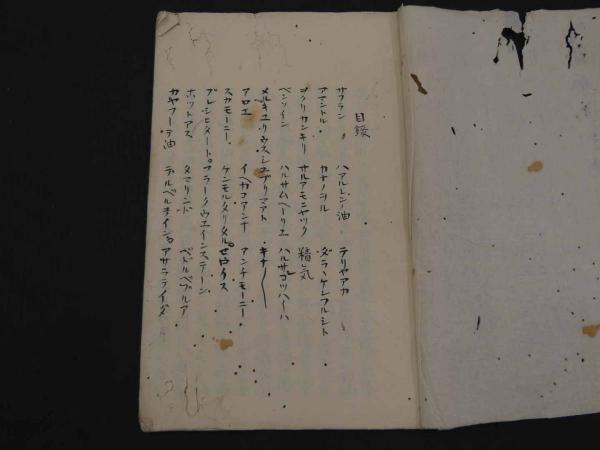 目録
サフラン ハアルレン油 テリヤアカ
アマントル カナノヲル ダラーケンフルシト
ヲクリカンキリ サルアモニヤック 精気
ベンソイン ハルサムヘーリエ ハルサコツハイハ
メルキユリウス・シユブリマアト キナ
アロエ イヘカコアンナ アンチモーニー
スカモーニー ケンモルタリタル セウイタス
プレシヒタート フラークウエインステーン
ホットアス タマリンド ベドルベブルア
カヤフーテ油 テルベルメインテ アサラライタ